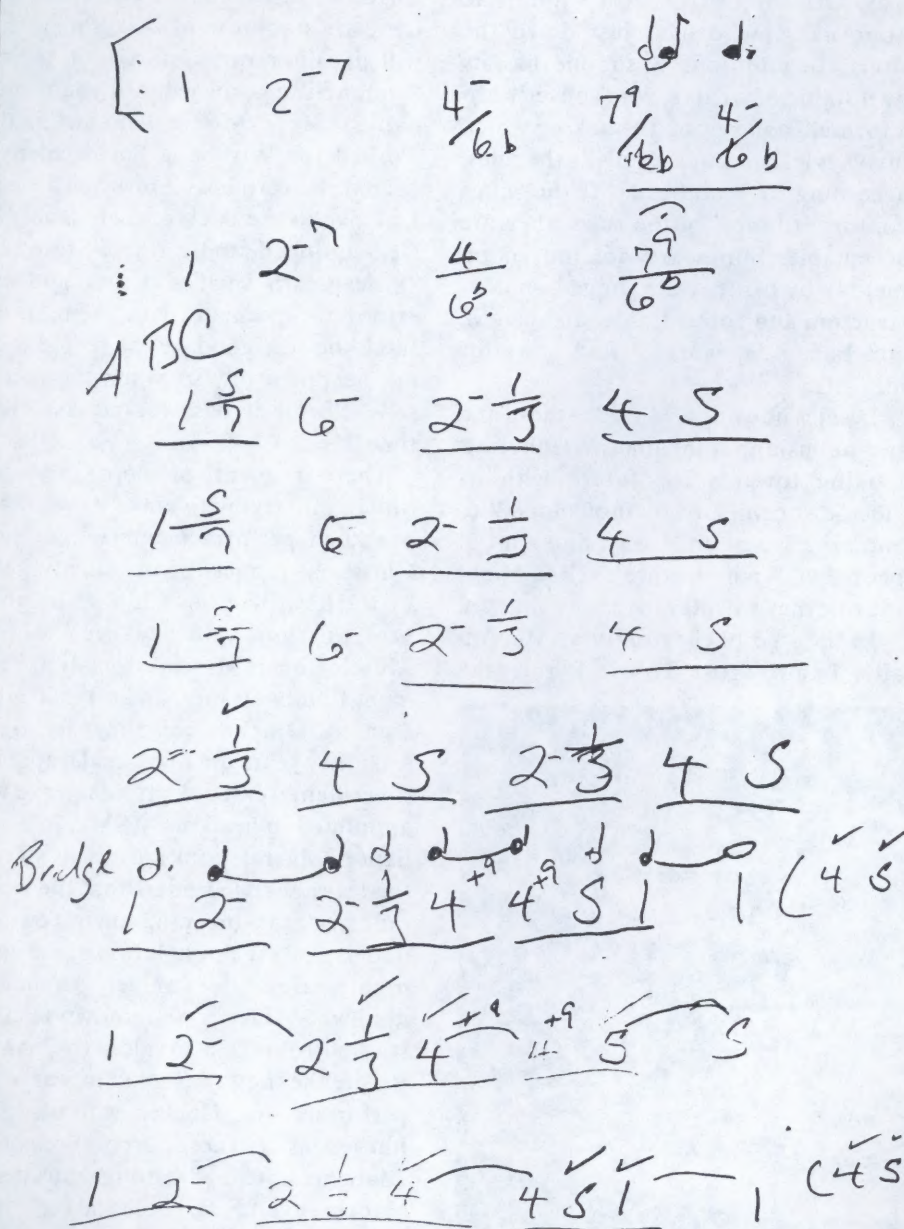 1 2-7 4-/6b 7 9/6b 4-/6b
1 2-7 4/6b 7 9/6b
ABC
1 5/7 6- 2- 1/3 4 5
1 5/7 6- 2- 1/3 4 5
1 5/7 6- 2- 1/3 4 5
2- 1/3 4 5 2- 1/3 4 5
Bridge 1 2- 2- 1/3 4+9 4+9 5 1 1 (4 5
1 2- 2- 1/3 4+9 4+9 5 5
1 2- 2 1/3 4 4 5 1 1 (4 5